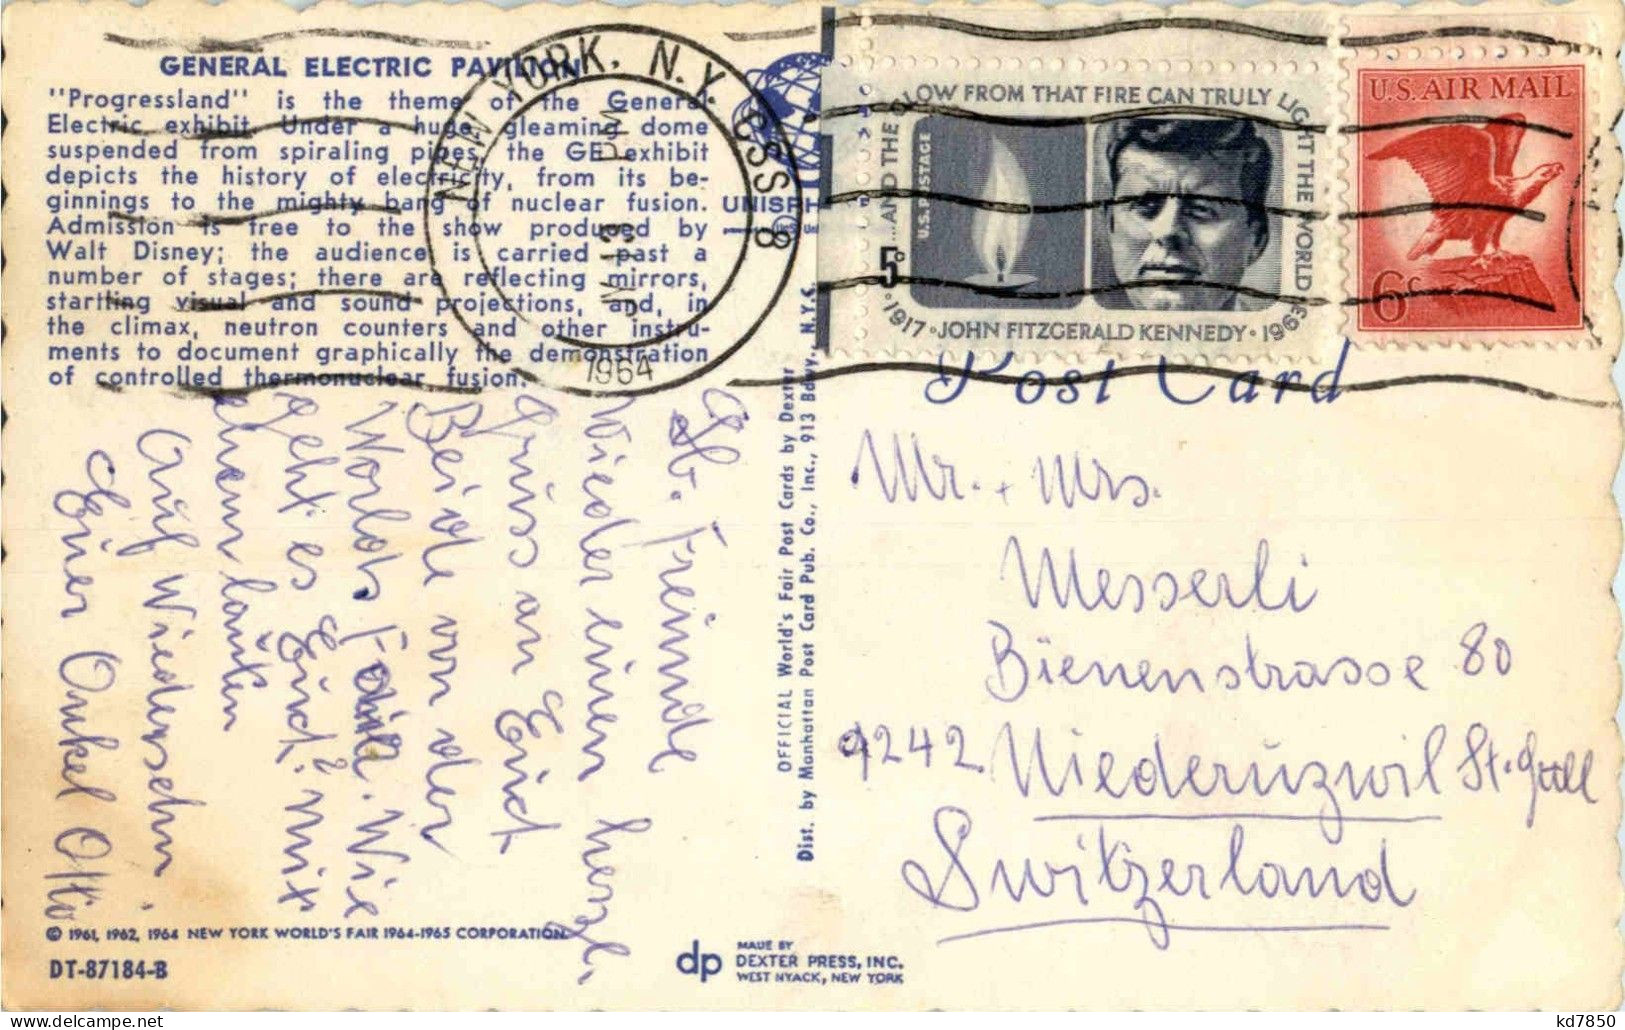 GENERAL ELECTRIC PAVILION
"Progressland" is the theme of the General
Electric exhibit. Under a huge, gleaming dome
suspended from spiraling pipes, the GE exhibit
depicts the history of electricity, from its be-
ginnings to the mighty bang of nuclear fusion.
Admission is free to the show produced by
Walt Disney; the audience is carried past a
number of stages; there are reflecting mirrors,
startling visual and sound projections, and, in
the climax, neutron counters and other instru-
ments to document graphically the demonstration
of controlled thermonuclear fusion.
NEW YORK, N.Y. GSS 8
PM
1964
UNISPH
...AND THE GLOW FROM THAT FIRE CAN TRULY LIGHT THE WORLD
U.S. POSTAGE
5c
1917 · JOHN FITZGERALD KENNEDY · 1963
U.S. AIR MAIL
6c
Post Card
Lb. Freunde
Wieder einen herzl.
Gruss an Euch
Beide von der
Worlds Fair. Wie
geht es Euch? Mit
Auf Wiedersehn.
Euer Onkel Otto
OFFICIAL World's Fair Post Cards by Dexter
Dist. by Manhattan Post Card Pub. Co., Inc., 913 Bdwy. N.Y.C.
Mr. + Mrs.
Messerli
Bienenstrasse 80
9242 Niederuzwil St. Gall
Switzerland
© 1961, 1962, 1964 NEW YORK WORLD'S FAIR 1964-1965 CORPORATION
DT-87184-B
dp
MADE BY
DEXTER PRESS, INC.
WEST NYACK, NEW YORK
kd7850